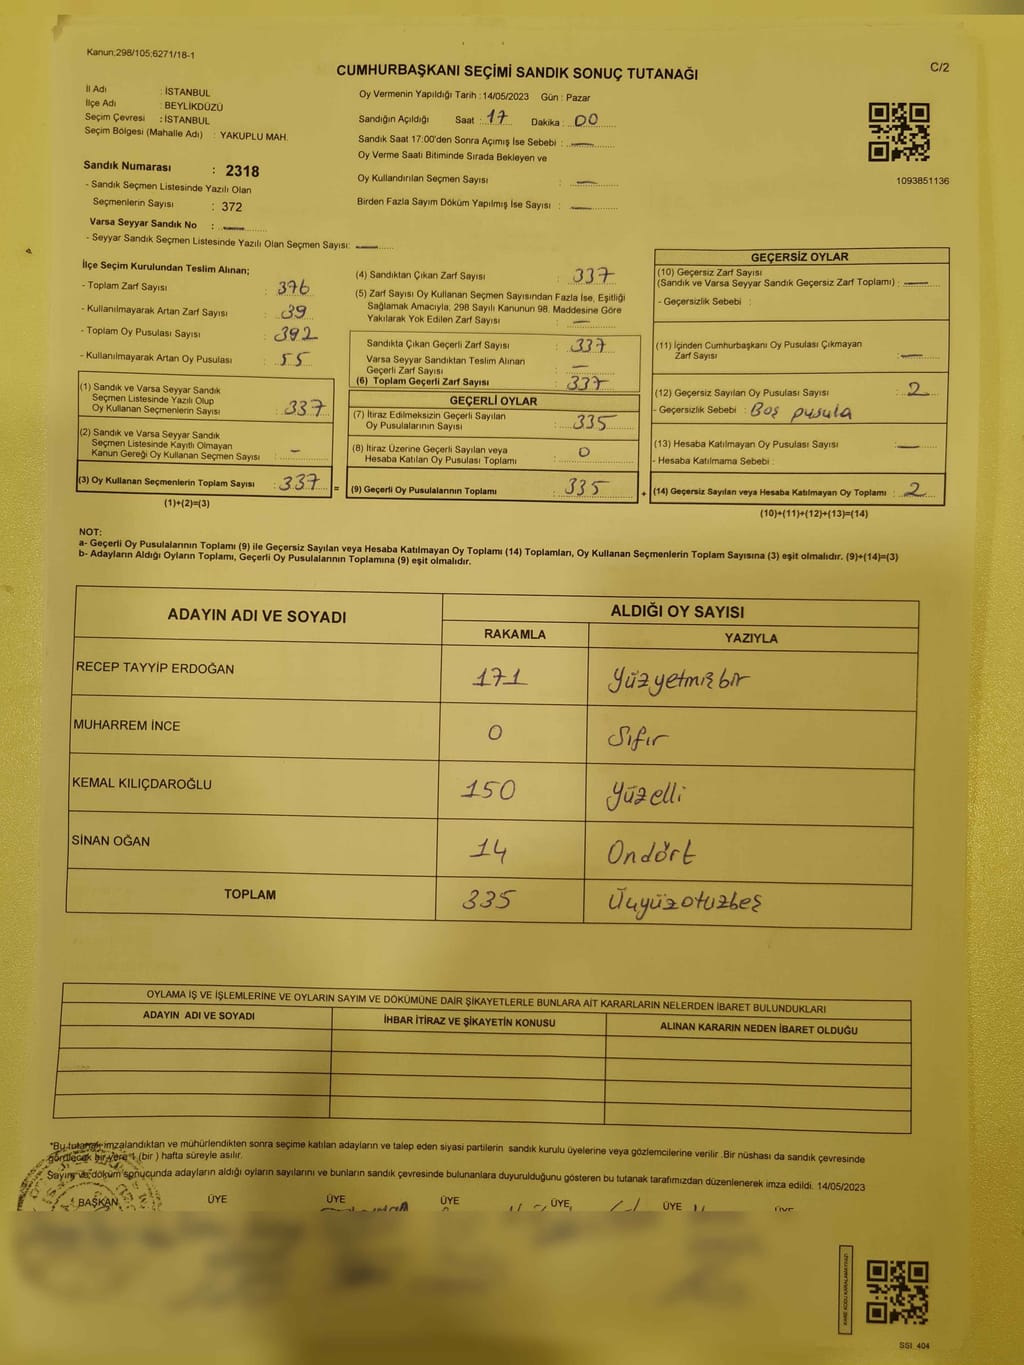 Kanun;298/105;6271/18-1
C/2
CUMHURBAŞKANI SEÇİMİ SANDIK SONUÇ TUTANAĞI
İl Adı : İSTANBUL
İlçe Adı : BEYLİKDÜZÜ
Seçim Çevresi : İSTANBUL
Seçim Bölgesi (Mahalle Adı) : YAKUPLU MAH.
Sandık Numarası : 2318
- Sandık Seçmen Listesinde Yazılı Olan
Seçmenlerin Sayısı : 372
Varsa Seyyar Sandık No :
- Seyyar Sandık Seçmen Listesinde Yazılı Olan Seçmen Sayısı:
Oy Vermenin Yapıldığı Tarih : 14/05/2023 Gün : Pazar
Sandığın Açıldığı Saat : 17 Dakika : 00
Sandık Saat 17:00'den Sonra Açımış İse Sebebi :
Oy Verme Saati Bitiminde Sırada Bekleyen ve
Oy Kullandırılan Seçmen Sayısı :
Birden Fazla Sayım Döküm Yapılmış İse Sayısı :
1093851136
İlçe Seçim Kurulundan Teslim Alınan;
- Toplam Zarf Sayısı : 376
- Kullanılmayarak Artan Zarf Sayısı : 39
- Toplam Oy Pusulası Sayısı : 392
- Kullanılmayarak Artan Oy Pusulası : 55
(1) Sandık ve Varsa Seyyar Sandık
Seçmen Listesinde Yazılı Olup
Oy Kullanan Seçmenlerin Sayısı : 337
(2) Sandık ve Varsa Seyyar Sandık
Seçmen Listesinde Kayıtlı Olmayan
Kanun Gereği Oy Kullanan Seçmen Sayısı : -
(3) Oy Kullanan Seçmenlerin Toplam Sayısı : 337 =
(1)+(2)=(3)
(4) Sandıktan Çıkan Zarf Sayısı : 337
(5) Zarf Sayısı Oy Kullanan Seçmen Sayısından Fazla İse, Eşitliği
Sağlamak Amacıyla, 298 Sayılı Kanunun 98. Maddesine Göre
Yakılarak Yok Edilen Zarf Sayısı : -
Sandıkta Çıkan Geçerli Zarf Sayısı : 337
Varsa Seyyar Sandıktan Teslim Alınan
Geçerli Zarf Sayısı : -
(6) Toplam Geçerli Zarf Sayısı : 337
GEÇERLİ OYLAR
(7) İtiraz Edilmeksizin Geçerli Sayılan
Oy Pusulalarının Sayısı : 335
(8) İtiraz Üzerine Geçerli Sayılan veya
Hesaba Katılan Oy Pusulası Toplamı : 0
(9) Geçerli Oy Pusulalarının Toplamı : 335 +
GEÇERSİZ OYLAR
(10) Geçersiz Zarf Sayısı
(Sandık ve Varsa Seyyar Sandık Geçersiz Zarf Toplamı) : -
- Geçersizlik Sebebi :
(11) İçinden Cumhurbaşkanı Oy Pusulası Çıkmayan
Zarf Sayısı : -
(12) Geçersiz Sayılan Oy Pusulası Sayısı : 2
- Geçersizlik Sebebi : Boş pusula
(13) Hesaba Katılmayan Oy Pusulası Sayısı : -
- Hesaba Katılmama Sebebi :
(14) Geçersiz Sayılan veya Hesaba Katılmayan Oy Toplamı : 2
(10)+(11)+(12)+(13)=(14)
NOT:
a- Geçerli Oy Pusulalarının Toplamı (9) ile Geçersiz Sayılan veya Hesaba Katılmayan Oy Toplamı (14) Toplamları, Oy Kullanan Seçmenlerin Toplam Sayısına (3) eşit olmalıdır. (9)+(14)=(3)
b- Adayların Aldığı Oyların Toplamı, Geçerli Oy Pusulalarının Toplamına (9) eşit olmalıdır.
ADAYIN ADI VE SOYADI
ALDIĞI OY SAYISI
RAKAMLA YAZIYLA
RECEP TAYYİP ERDOĞAN 171 Yüzyetmişbir
MUHARREM İNCE 0 Sıfır
KEMAL KILIÇDAROĞLU 150 Yüzelli
SİNAN OĞAN 14 Ondört
TOPLAM 335 Üçyüzotuzbeş
OYLAMA İŞ VE İŞLEMLERİNE VE OYLARIN SAYIM VE DÖKÜMÜNE DAİR ŞİKAYETLERLE BUNLARA AİT KARARLARIN NELERDEN İBARET BULUNDUKLARI
ADAYIN ADI VE SOYADI İHBAR İTİRAZ VE ŞİKAYETİN KONUSU ALINAN KARARIN NEDEN İBARET OLDUĞU
*Bu tutanak imzalandıktan ve mühürlendikten sonra seçime katılan adayların ve talep eden siyasi partilerin sandık kurulu üyelerine veya gözlemcilerine verilir .Bir nüshası da sandık çevresinde
görülecek bir yere 1 (bir ) hafta süreyle asılır.
Sayım ve döküm sonucunda adayların aldığı oyların sayılarını ve bunların sandık çevresinde bulunanlara duyurulduğunu gösteren bu tutanak tarafımızdan düzenlenerek imza edildi. 14/05/2023
BAŞKAN ÜYE ÜYE ÜYE ÜYE ÜYE
SSİ. 404